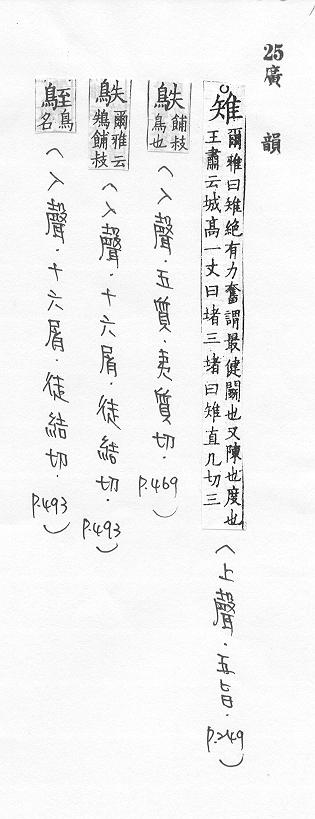 25廣韻
雉 爾雅曰雉絶有力奮謂最健鬬也又陳也度也
王肅云城高一丈曰堵三堵曰雉直几切三
(上聲.五旨.p.249)
鴩 餔枝
鳥也
(入聲.五質.夷質切.p.469)
鴩 爾雅云
鴩餔枝
(入聲.十六屑.徒結切.p.493)
鵄 鳥
名
(入聲.十六屑.徒結切.p.493)